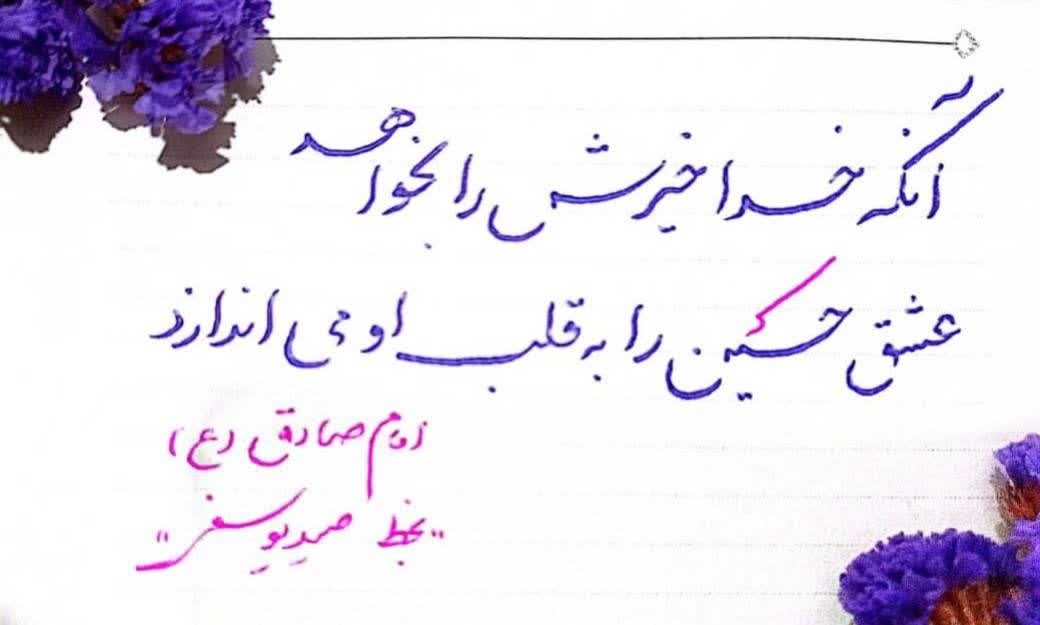 آنکه خدا خیرش را بخواهد
عشق حسین را به قلب او می اندازد
امام صادق (ع)
"بخط